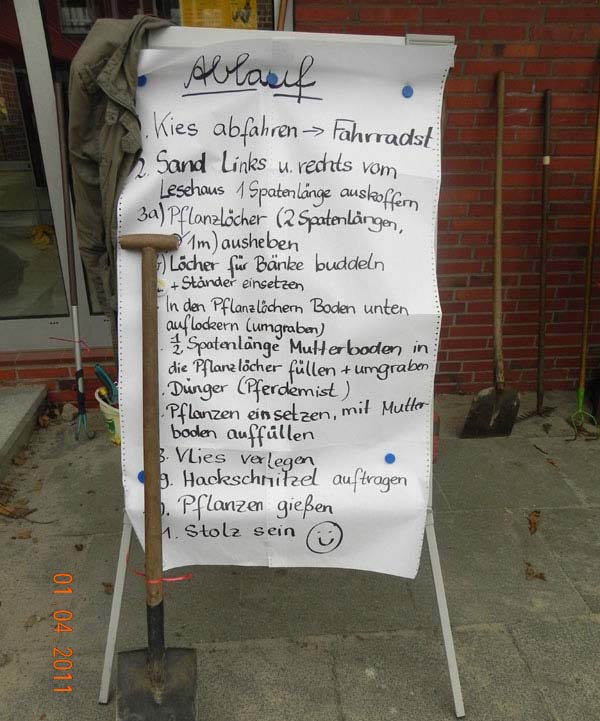 Ablauf
. Kies abfahren → Fahrradst
2. Sand Links u. rechts vom
Lesehaus 1 Spatenlänge auskoffern
3a) Pflanzlöcher (2 Spatenlängen,
1m) ausheben
) Löcher für Bänke buddeln
+ Ständer einsetzen
. In den Pflanzlöchern Boden unten
auflockern (umgraben)
. ½ Spatenlänge Mutterboden in
die Pflanzlöcher füllen + umgraben
. Dünger (Pferdemist)
. Pflanzen einsetzen, mit Mutter-
boden auffüllen
8. Vlies verlegen
9. Hackschnitzel auftragen
. Pflanzen gießen
1. Stolz sein ☺
01 04 2011